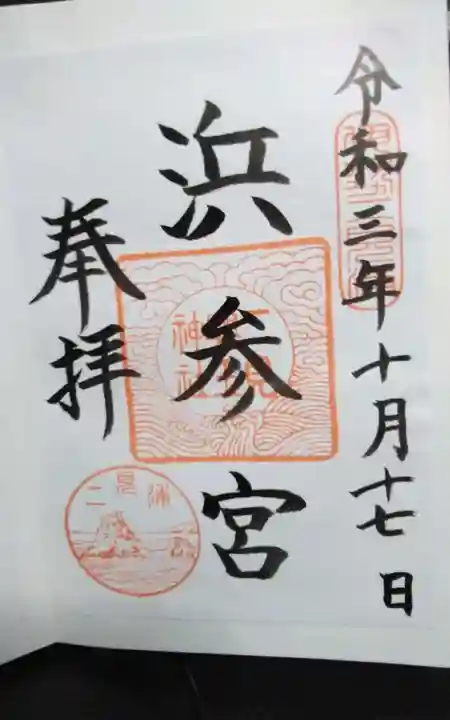 令和三年十月十七日
浜参宮
奉拝
二見
神社
二見浦